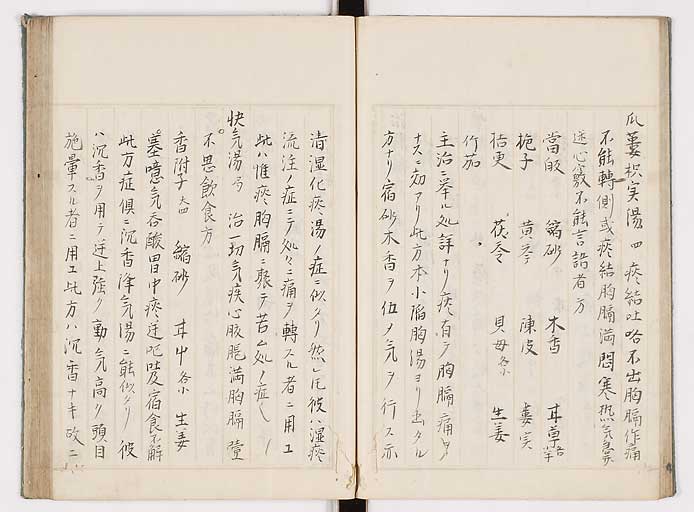 瓜蔞枳実湯 四 痰結吐咯不出胸膈作痛
不能轉側或痰結胸膈満悶寒热気急
迷心竅不能言語者方
當皈 縮砂 木香 甘草
栀子 黄芩 陳皮 蔞実
桔更 茯苓 貝母 各小 生姜
竹茹
主治ニ挙ル処詳ナリ痰有テ胸膈痛ヲ
ナスニ効アリ此方本小陥胸湯ヨリ出タル
方ナリ宿砂木香ヲ伍メ気ヲ行ス亦
清湿化痰湯ノ症ニ似タリ然レ圧彼ハ湿痰
流注ノ症ニテ処々ニ痛ヲ轉スル者ニ用エ
此ハ惟痰胸膈ニ聚テ苦ム処ノ症
快気湯 局 治一切気疾心腹脹満胸膈壅
不思飲食方
香附子 大四 縮砂 甘中 各小 生姜
噫気呑酸胃中痰逆呕吐宿食不解
此方症倶ニ沉香降気湯ニ能似タリ彼
ハ沉香ヲ用テ逆上強ク動気高ク頭目
施暈スル者ニ用エ此方ハ沉香ナキ故ニ